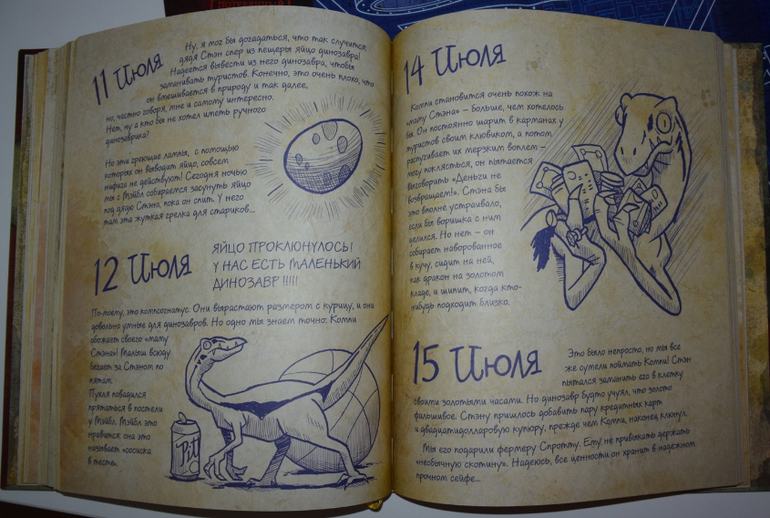 11 Июля
Ну, я мог бы догадаться, что так случится,
дядя Стэн спер из пещеры яйцо динозавра!
Надеется вывести из него динозавра, чтобы
заманивать туристов. Конечно, это очень плохо, что
он вмешивается в природу и так далее,
но, честно говоря, мне и самому интересно.
Нет, ну а кто бы не хотел иметь ручного
динозаврика?
Но эти греющие лампы, с помощью
которых он выводит яйцо, совсем
нифига не действуют! Сегодня ночью
мы с Мэйбл собираемся засунуть яйцо
под дядю Стэна, пока он спит. У него
там эта жуткая грелка для стариков...
12 Июля
ЯЙЦО ПРОКЛЮНУЛОСЬ!
У НАС ЕСТЬ МАЛЕНЬКИЙ
ДИНОЗАВР!!!!!
По-моему, это компсогнатус. Они вырастают размером с курицу, и они
довольно умные для динозавров. Но одно мы знаем точно: Компи
обожает своего «маму
Стэна»! Малыш всюду
бегает за Стэном по
пятам.
Пухля повадился
прятаться в постели
у Мэйбл. Мэйбл это
нравится: она это
называет «сосиска
в тесте».
Pitt
14 Июля
Компи становится очень похож на
«маму Стэна» – больше, чем хотелось
бы. Он постоянно шарит в карманах у
туристов своим клювиком, а потом
распугивает их мерзким воплем –
могу поклясться, он пытается
выговорить «Деньги не
возвращаем!». Стэна бы
это вполне устраивало,
если бы воришка с ним
делился. Но нет – он
собирает наворованное
в кучу, сидит на ней,
как дракон на золотом
кладе, и шипит, когда кто-
нибудь подходит близко.
15 Июля
Это было непросто, но мы все
же сумели поймать Компи! Стэн
пытался заманить его в клетку
своими золотыми часами. Но динозавр будто учуял, что золото
фальшивое. Стэну пришлось добавить пару кредитных карт
и двадцатидолларовую купюру, прежде чем Компи, наконец, клюнул.
Мы его подарили фермеру Спротту. Ему не привыкать держать
«необычную скотину». Надеюсь, все ценности он хранит в надежном
прочном сейфе...